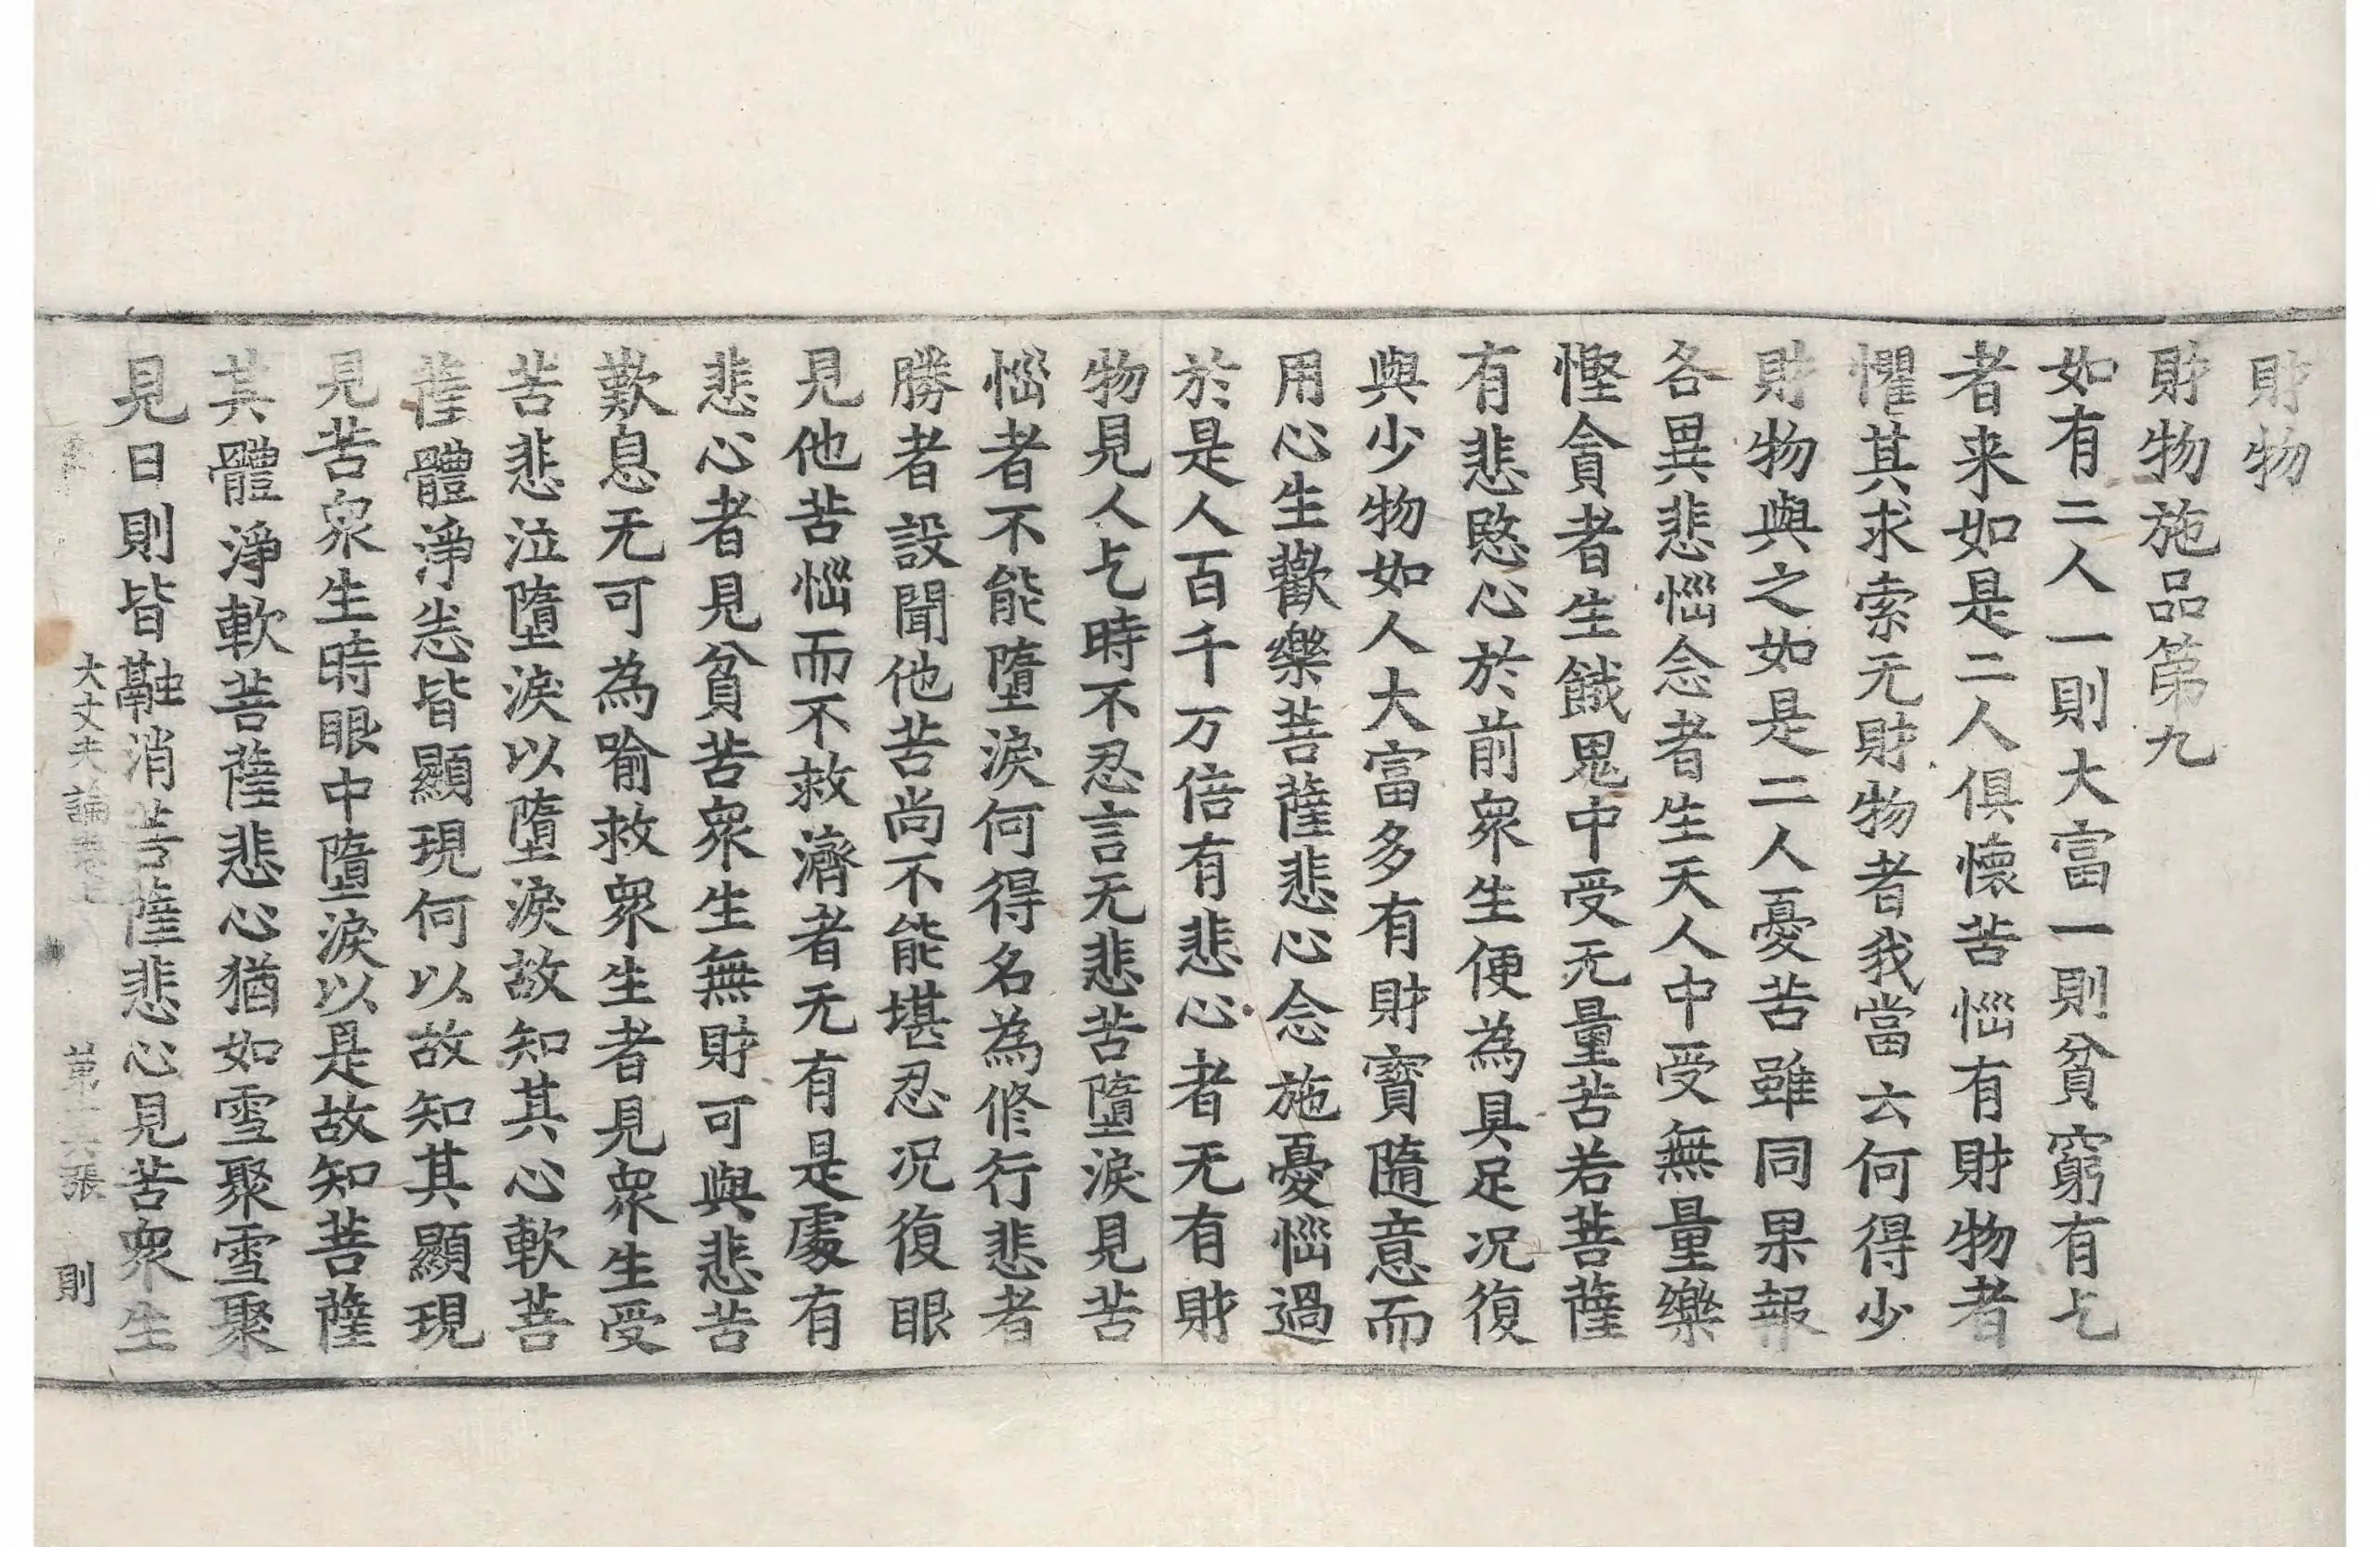 財物
財物施品第九
如有二人一則大富一則貧窮有乞
者来如是二人俱懷苦惱有財物者
懼其求索无財物者我當云何得少
財物與之如是二人憂苦雖同果報
各異悲惱念者生天人中受無量樂
慳貪者生餓鬼中受无量苦若菩薩
有悲愍心於前衆生便為具足况復
與少物如人大富多有財寶隨意而
用心生歡樂菩薩悲心念施憂惱過
於是人百千万倍有悲心者无有財
物見人乞時不忍言无悲苦墮淚見苦
惱者不能墮淚何得名為修行悲者
勝者設聞他苦尚不能堪忍况復眼
見他苦惱而不救濟者无有是處有
悲心者見貧苦衆生無財可與悲苦
歎息无可為喻救衆生者見衆生受
苦悲泣墮淚以墮淚故知其心軟菩
薩體淨悉皆顯現何以故知其顯現
見苦衆生時眼中墮淚以是故知菩薩
其體淨軟菩薩悲心猶如雪聚雪聚
見日則皆融消菩薩悲心見苦衆生
大丈夫論卷上 第十六張 則